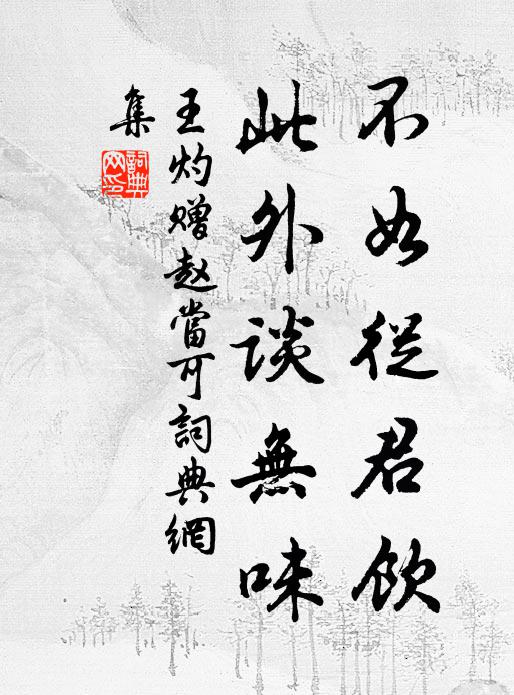 不如從君飲
此外談無味
王灼贈趙當可詞典網
集
詞典
网印